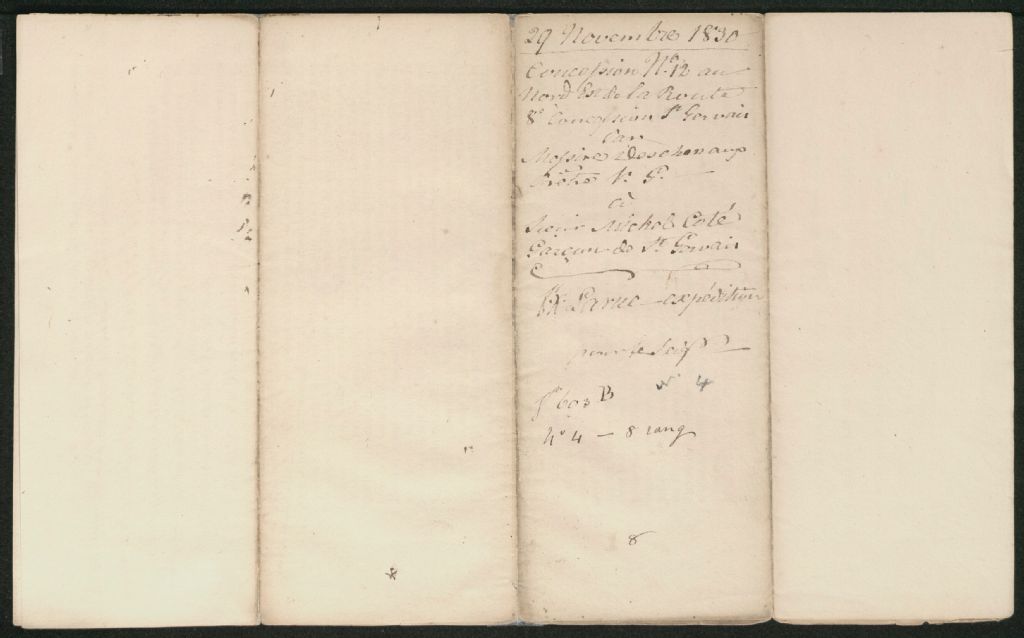 29 Novembre 1830
Concession No. 12 au
Nord Est de la Route
8e Concession St Gervais
Par
Messire Deschenaux
Prêtre
à
Sieur Michel Coté
Garçon de St Gervais
expédition
pour le Seigr
No 4
fo 603 B
No 4 — 8 rang
8